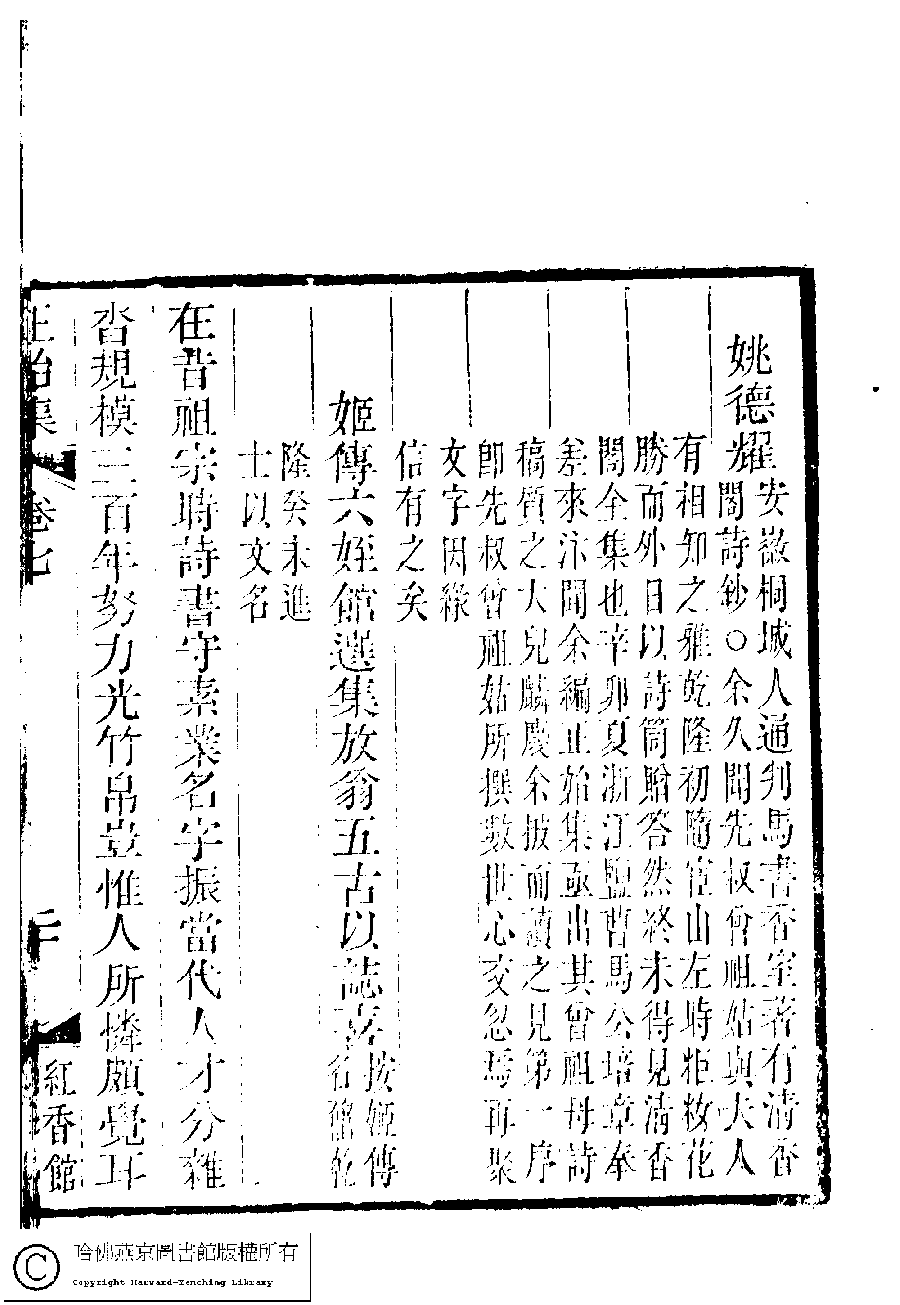 姚德耀安徽桐城人通判馬書香室著有清香
閣詩鈔○余久聞先叔曾祖姑與夫人
有相知之雅乾隆初隨宦山左時柜妝花
勝而外日以詩筒贈答然終未得見清香
閣全集也辛卯夏浙江鹽曹馬公培章奉
差來汴聞余編正始集亟出其曾祖母詩
稿質之大兒麟慶余披而讀之見第一序
即先叔曾祖姑所撰數世心交忽焉再聚
文字因緣
信有之矣
姬傳六姪館選集放翁五古以誌喜按姬傳
名鼐乾
隆癸未進
士以文名
在昔祖宗時詩書守素業名字振當代人才分雜
沓規模三百年努力光竹帛豈惟人所憐頗覺耳
正始集
卷七
二十
紅香館
哈佛燕京圖書館版權所有
Copyright Harvard-Yenching Library